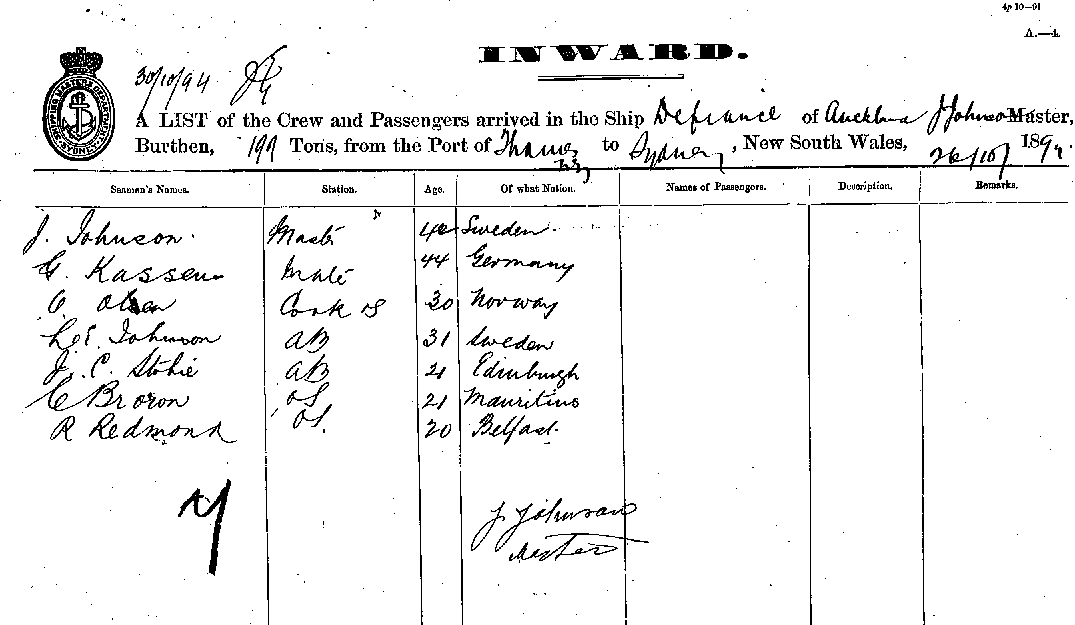 4p 10—91
A.—4.
INWARD.
30/10/94
SHIPPING MASTERS DEPARTMENT SYDNEY
A LIST of the Crew and Passengers arrived in the Ship Defiance of Auckland J Johnson Master,
Burthen, 199 Tons, from the Port of Thames NZ to Sydney, New South Wales, 26/10/ 1894.
Seamen's Names. Station. Age. Of what Nation. Names of Passengers. Description. Remarks.
J. Johnson. Master 40 Sweden
G. Kassen Mate 44 Germany
C. Olsen Cook OS 30 Norway
Johnson AB 31 Sweden
J. C. Stobie AB 21 Edinburgh
C Broron OS 21 Mauritius
R Redmond OS. 20 Belfast.
J Johnson
Master